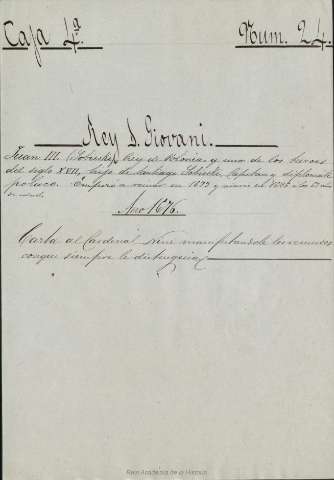 Caja 4ª
Num. 24.
Rey S. Giovani.
Juan III. (Sobieski) Rey de Polonia y uno de los heroes
del siglo XVII, hijo de Santiago Sobieski, Capitan y diplomatico
polaco. Empezó a reinar en y murio en
de edad.
Año 1676.
Carta al Cardenal manifestandole
conque siempre le distinguia
Real Academia de la Historia